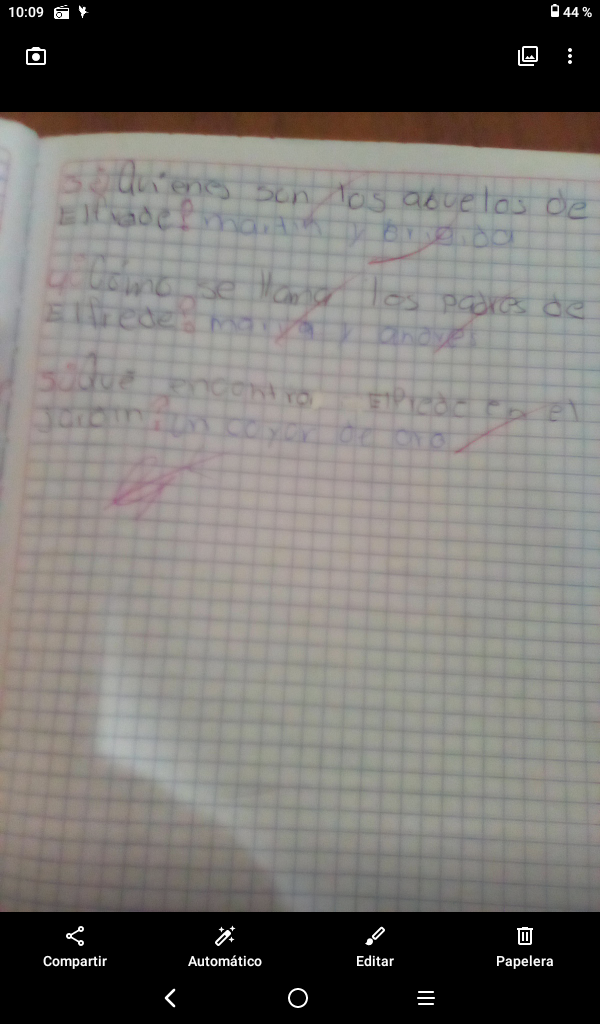 10:09
44 %
¿Quienes son los abuelos de
Elfrede? martin y brigida
¿Cómo se llama los padres de
Elfrede? maria y andres
5 ¿Que encontro Elfrede en el
jardin? un collar de oro
Compartir
Automático
Editar
Papelera